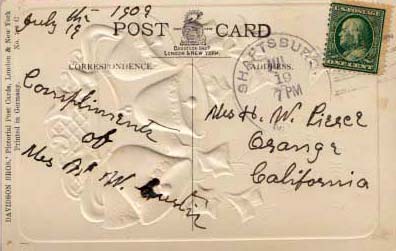 July 19th 1909
POST CARD
DAVIDSON BROS
LONDON & NEW YORK.
CORRESPONDENCE.
ADDRESS.
U.S. POSTAGE
ONE CENT
SHAFTSBURY
19
7 PM
Compliments
of
Mrs W. Austin
Mrs H. W. Pierce
Orange
California
DAVIDSON BROS.' Pictorial Post Cards, London & New York
Printed in Germany.